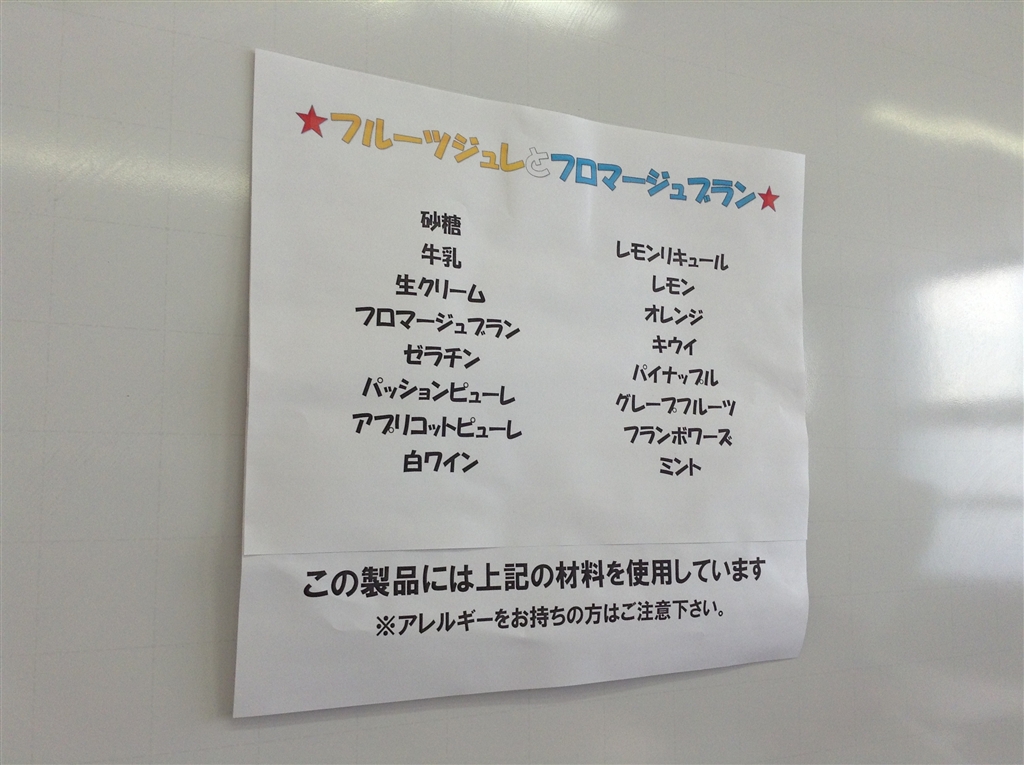 ★フルーツジュレとフロマージュブラン★
砂糖
牛乳
生クリーム
フロマージュブラン
ゼラチン
パッションピューレ
アプリコットピューレ
白ワイン
レモンリキュール
レモン
オレンジ
キウイ
パイナップル
グレープフルーツ
フランボワーズ
ミント
この製品には上記の材料を使用しています
※アレルギーをお持ちの方はご注意下さい。